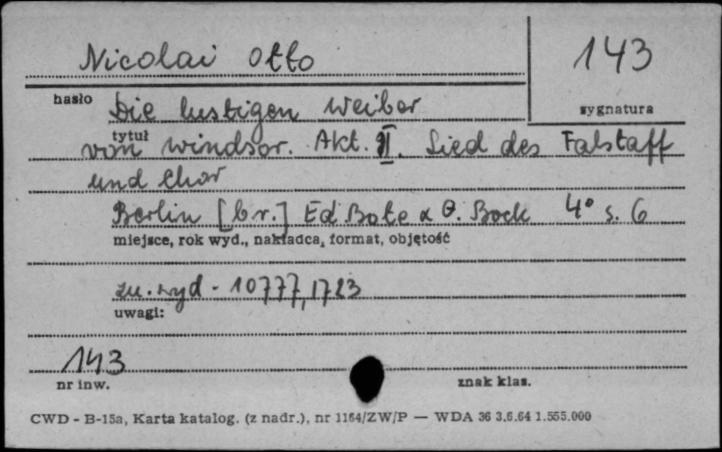 Nicolai Otto
143
hasło
Die lustigen Weiber
sygnatura
tytuł
von Windsor. Akt. II. Lied des Falstaff
und Chor
Berlin [br.] Ed Bote & G. Bock 4° s. 6
miejsce, rok wyd., nakładca, format, objętość
zn. wyd - 10777, 1723
uwagi:
143
nr inw.
znak klas.
CWD - B-15a, Karta katalog. (z nadr.), nr 1164/ZW/P — WDA 36 3.6.64 1.555.000